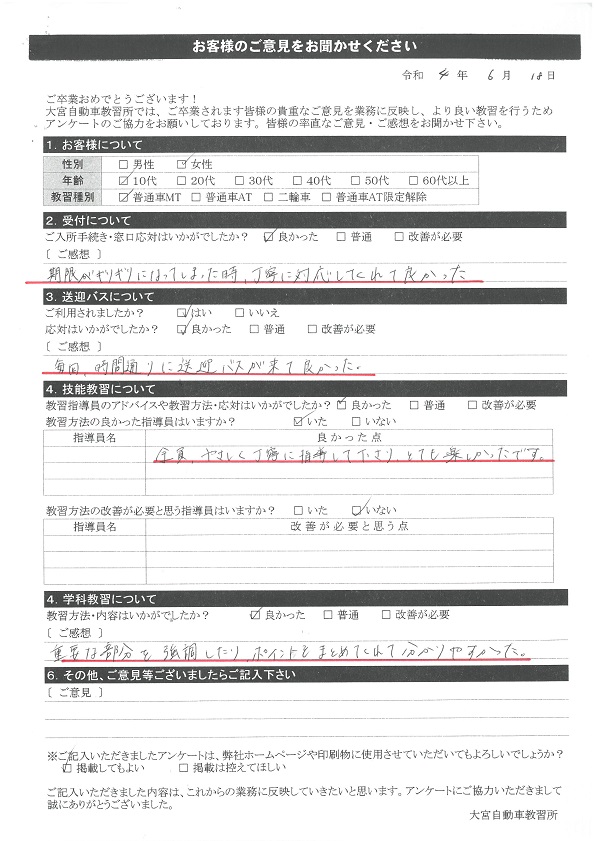 お客様のご意見をお聞かせください
令和 4 年 6 月 18 日
ご卒業おめでとうございます！
大宮自動車教習所では、ご卒業されます皆様の貴重なご意見を業務に反映し、より良い教習を行うため
アンケートのご協力をお願いしております。皆様の率直なご意見・ご感想をお聞かせ下さい。
1. お客様について
性別 □ 男性 ☑ 女性
年齢 ☑ 10代 □ 20代 □ 30代 □ 40代 □ 50代 □ 60代以上
教習種別 ☑ 普通車MT □ 普通車AT □ 二輪車 □ 普通車AT限定解除
2. 受付について
ご入所手続き・窓口応対はいかがでしたか？ ☑ 良かった □ 普通 □ 改善が必要
〔 ご感想 〕
期限がギリギリになってしまった時、丁寧に対応してくれて良かった
3. 送迎バスについて
ご利用されましたか？ ☑ はい □ いいえ
応対はいかがでしたか？ ☑ 良かった □ 普通 □ 改善が必要
〔 ご感想 〕
毎回、時間通りに送迎バスが来て良かった。
4. 技能教習について
教習指導員のアドバイスや教習方法・応対はいかがでしたか？ ☑ 良かった □ 普通 □ 改善が必要
教習方法の良かった指導員はいますか？ ☑ いた □ いない
指導員名 良かった点
全員、やさしく丁寧に指導して下さり、とても楽しかったです。
教習方法の改善が必要と思う指導員はいますか？ □ いた ☑ いない
指導員名 改善が必要と思う点
4. 学科教習について
教習方法・内容はいかがでしたか？ ☑ 良かった □ 普通 □ 改善が必要
〔 ご感想 〕
重要な部分を強調したり、ポイントをまとめてくれて分かりやすかった。
6. その他、ご意見等ございましたらご記入下さい
〔 ご意見 〕
※ご記入いただきましたアンケートは、弊社ホームページや印刷物に使用させていただいてもよろしいでしょうか？
☑ 掲載してもよい □ 掲載は控えてほしい
ご記入いただきました内容は、これからの業務に反映していきたいと思います。アンケートにご協力いただきまして
誠にありがとうございました。
大宮自動車教習所